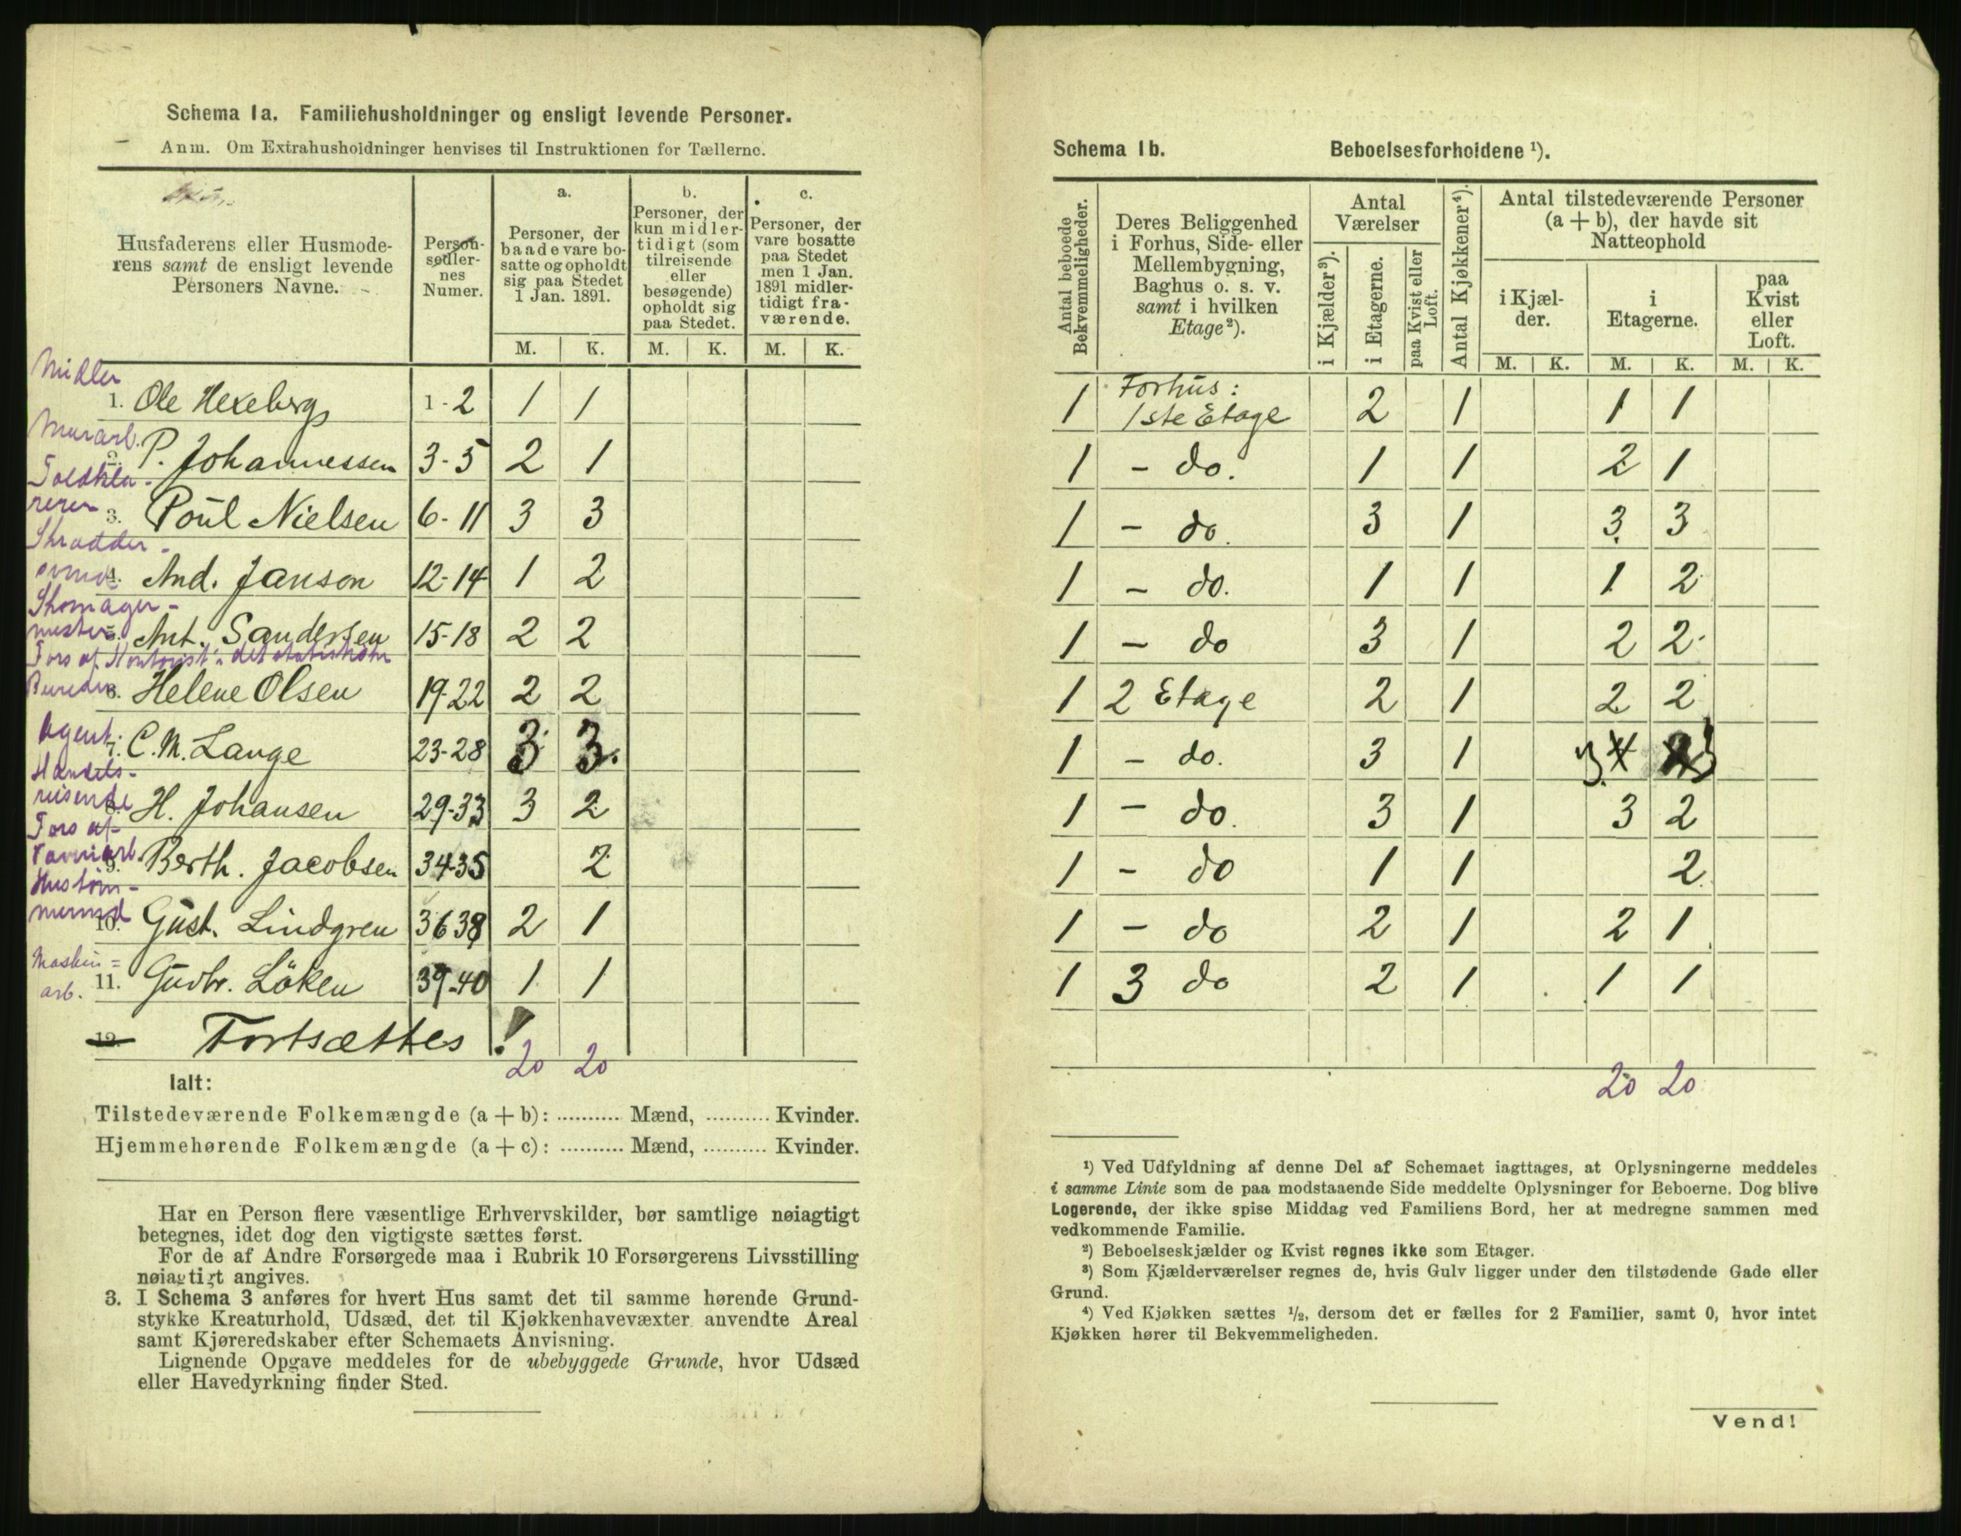 Schema 1a. Familiehusholdninger og ensligt levende Personer.
Anm. Om Extrahusholdninger henvises til Instruktionen for Tællerne.
Husfaderens eller Husmode-
rens samt de ensligt levende
Personers Navne.
Person-
sedler-
nes
Numer.
a.
Personer, der
baade vare bo-
satte og opholdt
sig paa Stedet
1 Jan. 1891.
b.
Personer, der
kun midler-
tidigt (som
tilreisende
eller
besøgende)
opholdt sig
paa Stedet.
c.
Personer, der
vare bosatte
paa Stedet
men 1 Jan.
1891 midler-
tidigt fra-
værende.
M. K. M. K. M. K.
Midler
1. Ole Hexeberg 1-2 1 1
Murarb.
2. P. Johannessen 3-5 2 1
Toldkla-
rerer
3. Poul Nielsen 6-11 3 3
Skrædder-
svend
4. And. Janson 12-14 1 2
Skomager-
mester
5. Ant. Sandersen 15-18 2 2
Fors af Kontorist i det statistiske
Bureau
6. Helene Olsen 19-22 2 2
Agent
7. C. M. Lange 23-28 3 3
Handels-
reisende
8. H. Johansen 29-33 3 2
Fors af
9. Berth. Jacobsen 34-35 2
Hustøm-
mermd
10. Gust. Lindgren 36 38 2 1
Maskin-
arb.
11. Gudbr. Löken 39-40 1 1
12. Fortsættes!
20 20
Ialt:
Tilstedeværende Folkemængde (a + b): .......... Mænd, .......... Kvinder.
Hjemmehørende Folkemængde (a + c): .......... Mænd, .......... Kvinder.
Har en Person flere væsentlige Erhvervskilder, bør samtlige nøiagtigt
betegnes, idet dog den vigtigste sættes først.
For de af Andre Forsørgede maa i Rubrik 10 Forsørgerens Livsstilling
nøiagtigt angives.
3. I Schema 3 anføres for hvert Hus samt det til samme hørende Grund-
stykke Kreaturhold, Udsæd, det til Kjøkkenhavevæxter anvendte Areal
samt Kjøreredskaber efter Schemaets Anvisning.
Lignende Opgave meddeles for de ubebyggede Grunde, hvor Udsæd
eller Havedyrkning finder Sted.
Schema 1b. Beboelsesforholdene ¹).
Antal beboede
Bekvemmeligheder.
Deres Beliggenhed
i Forhus, Side- eller
Mellembygning,
Baghus o. s. v.
samt i hvilken
Etage²).
Antal
Værelser
i Kjælder³).
i Etagerne.
paa Kvist eller
Loft.
Antal Kjøkkener⁴).
Antal tilstedeværende Personer
(a + b), der havde sit
Natteophold
i Kjæl-
der.
i
Etagerne.
paa
Kvist
eller
Loft.
M. K. M. K. M. K.
Forhus:
1 1ste Etage 2 1 1 1
1 - do. 1 1 2 1
1 - do. 3 1 3 3
1 - do. 1 1 1 2
1 - do 3 1 2 2
1 2 Etage 2 1 2 2
1 - do. 3 1 3 4 3
1 - do. 3 1 3 2
1 - do 1 1 2
1 - do 2 1 2 1
1 3 do 2 1 1 1
20 20
¹) Ved Udfyldning af denne Del af Schemaet iagttages, at Oplysningerne meddeles
i samme Linie som de paa modstaaende Side meddelte Oplysninger for Beboerne. Dog blive
Logerende, der ikke spise Middag ved Familiens Bord, her at medregne sammen med
vedkommende Familie.
²) Beboelseskjælder og Kvist regnes ikke som Etager.
³) Som Kjælderværelser regnes de, hvis Gulv ligger under den tilstødende Gade eller
Grund.
⁴) Ved Kjøkken sættes ½, dersom det er fælles for 2 Familier, samt 0, hvor intet
Kjøkken hører til Bekvemmeligheden.
Vend!